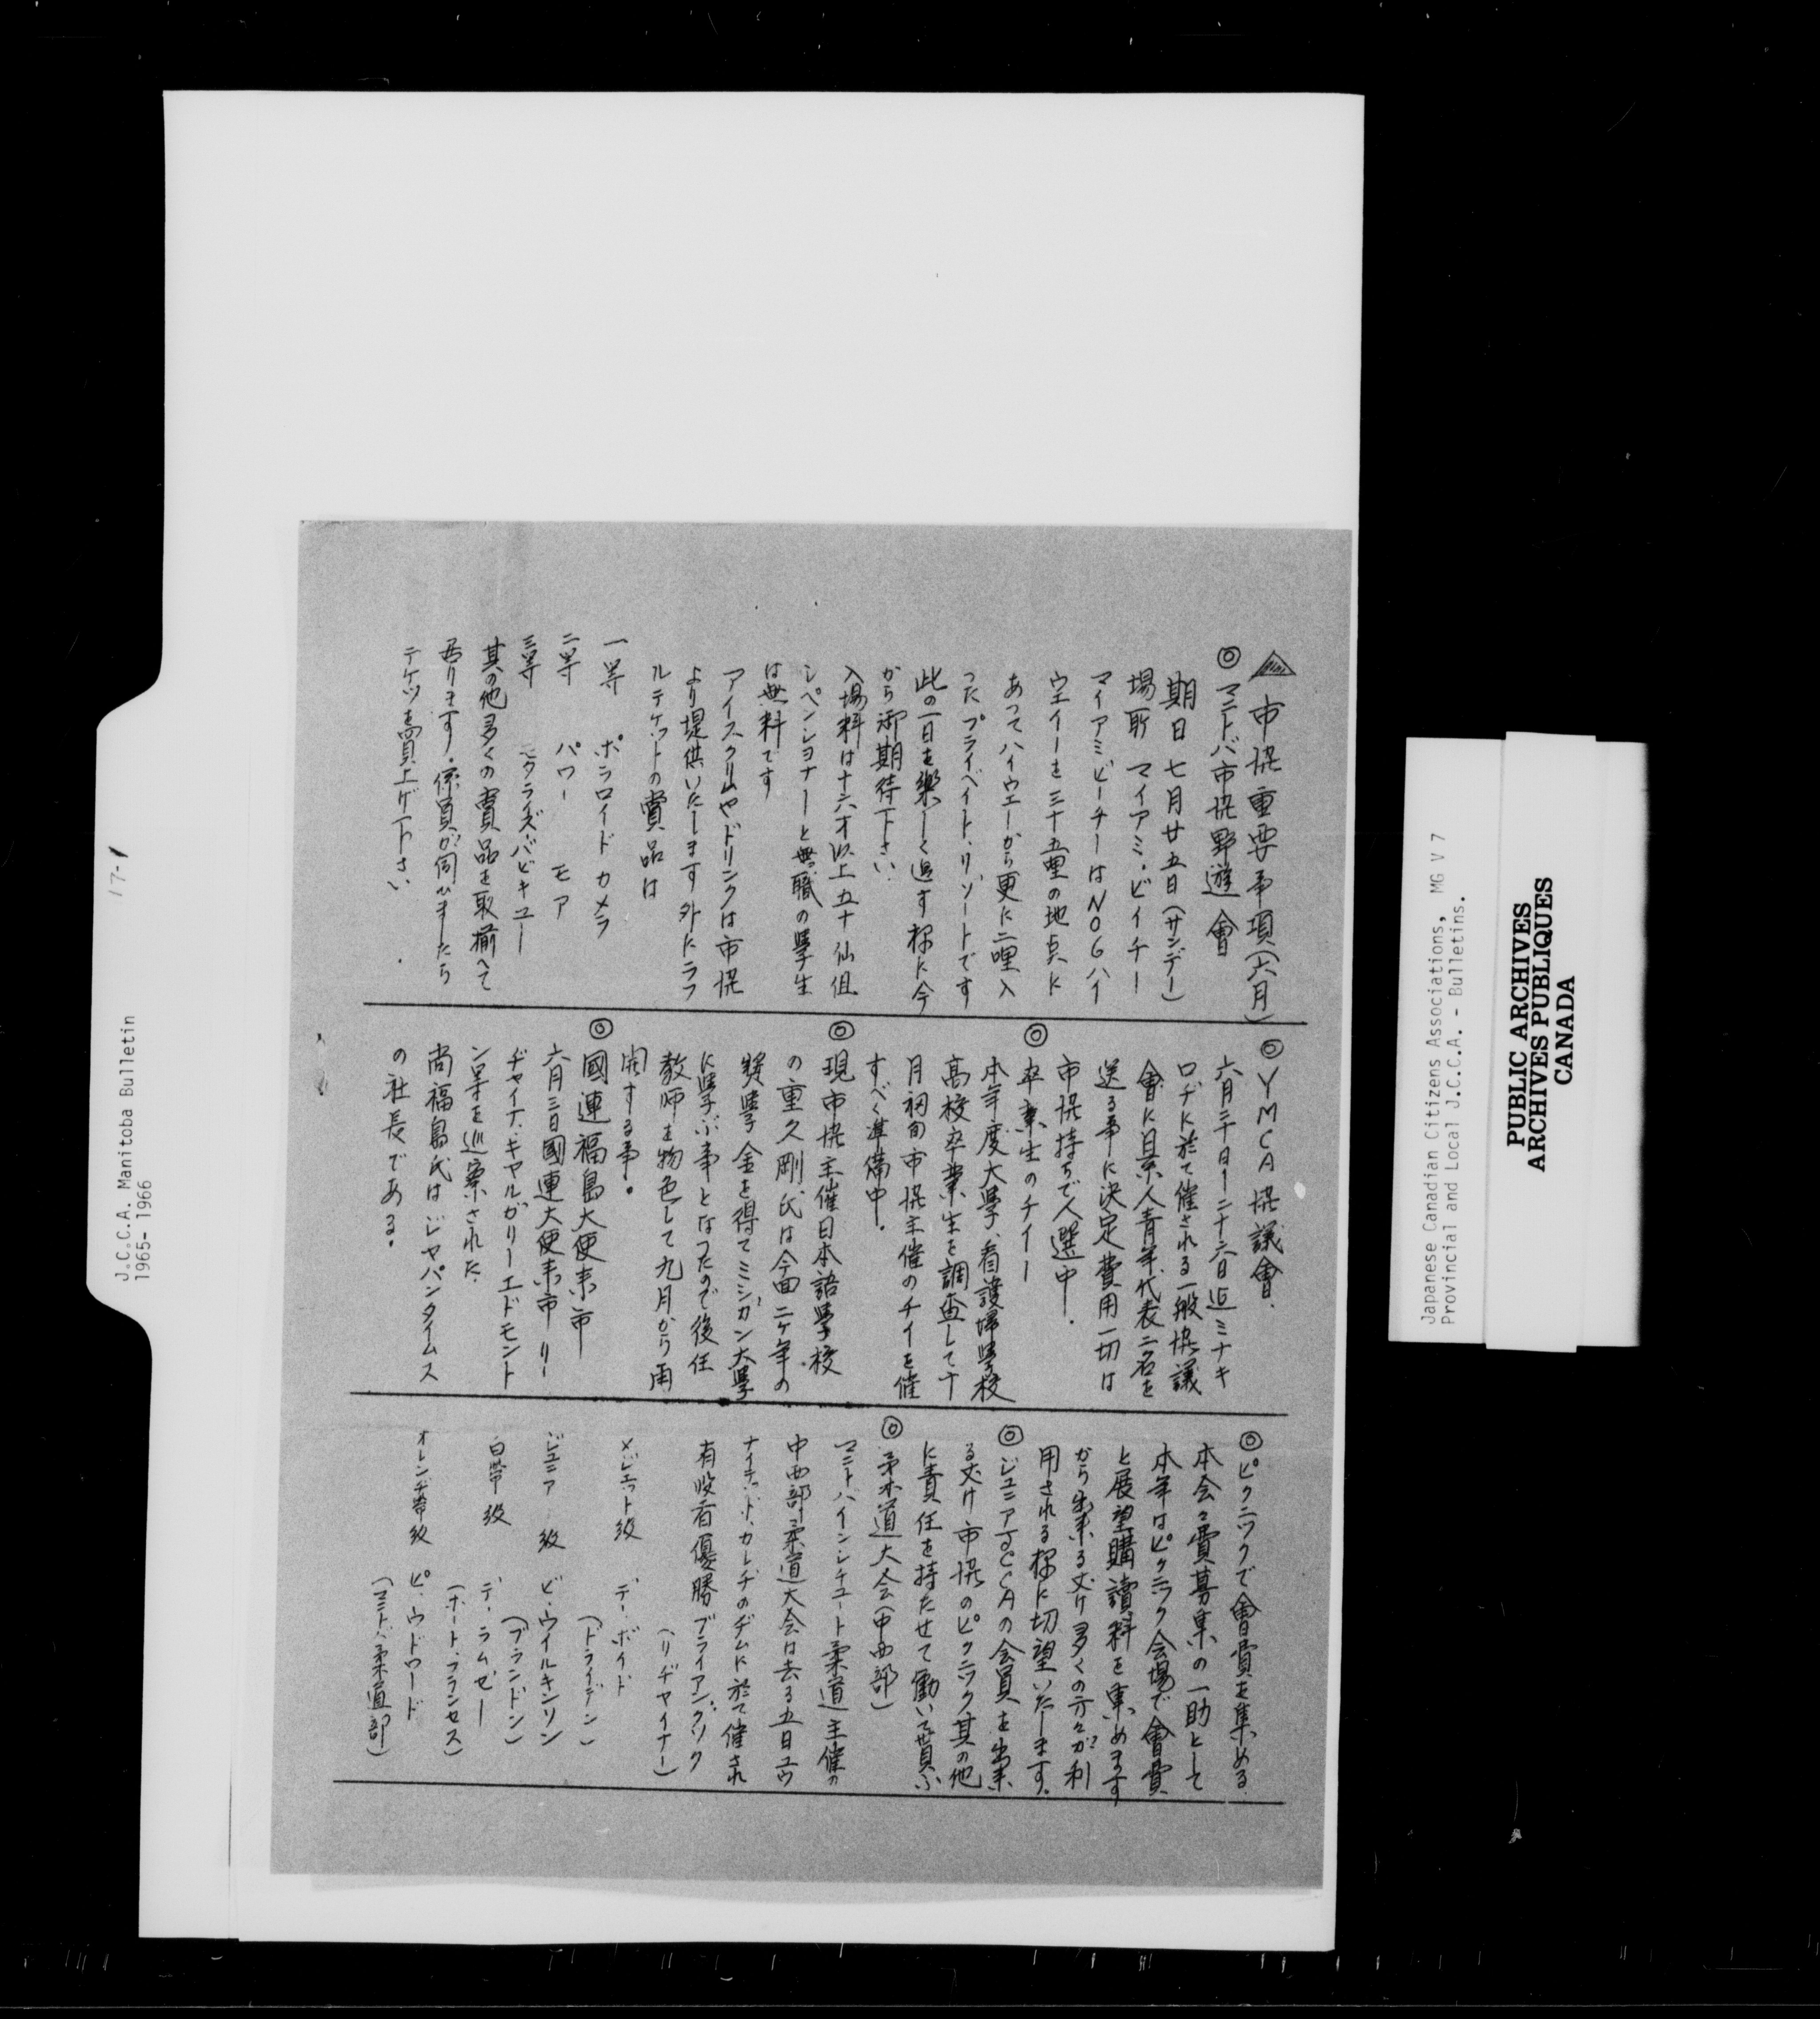 市協重要事項(六月)
◎マニトバ市協野遊會
期日 七月廿五日(サンデー)
場所 マイアミ・ビイチー
マイアミビーチーはNO6ハイ
ウエイーを三十五哩の地点に
あってハイウエーから更に二哩入
つたプライベイト、リ、ソートです
此の一日を樂しく過す様に今
から御期待下さい.
入場料は十六才以上五十仙但
シペンショナーと無職の學生
は無料です
アイスクリームやドリンクは市協
より提供いたします外にラフ
ルテケットの賞品は
一等 ポラロイド カメラ
二等 パワー モア
三等 モクライズ・バビキユー
其の他多くの賞品を取揃へて
居ります.係員が伺ひましたら
テケツを買上ゲ下さい
◎YMCA協議會.
六月二十日ー二十六日迄ミナキ
ロヂに於て催される一般協議
會に日系人青年代表二名を
送る事に決定費用一切は
市協持ちで人選中.
◎卒業生のチイー
本年度大學、看護婦學校
高校卒業生を調査して十
月初旬市協主催のチイを催
すべく準備中.
◎現市協主催日本語學校
の重久剛氏は今回二ケ年の
奨學金を得てミシガン大學
に學ぶ事となつたので後任
教師を物色して九月から再
開する事.
◎國連福島大使来市
六月三日國連大使来市 リー
ヂャイナ.キヤルガリーエドモント
ン等を巡察された.
尚福島氏はジャパンタイムス
の社長である.
◎ピクニックで會費を集める.
本会々費募集の一助として
本年はピクニック会場で會費
と展望購讀料を集めます
から出来る丈け多くの方々が利
用される様に切望いたします.
◎ジュニアJCCAの会員を出来
る丈け市協のピクニック其の他
に責任を持たせて働いて貰ふ
◎柔道大会(中西部)
マニトバインシチュート柔道主催の
中西部柔道大会は去る五日ユウ
ナイテッド、カレヂのヂムに於て催され
有段者優勝 ブライアン、グリク
(リヂヤイナー)
メジェット級 デー.ボイド
(ドライデン)
ジュニア級 ビ.ウイルキンソン
(ブランドン)
白帯級 デ.ラムゼー
(ホート.フランセス)
オレンヂ帯級 ピ.ウドワード
(マニトバ柔道部)
J.C.C.A. Manitoba Bulletin
1965-1966
17-1
Japanese Canadian Citizens Associations, MG V 7
Provincial and Local J.C.C.A. - Bulletins.
PUBLIC ARCHIVES
ARCHIVES PUBLIQUES
CANADA